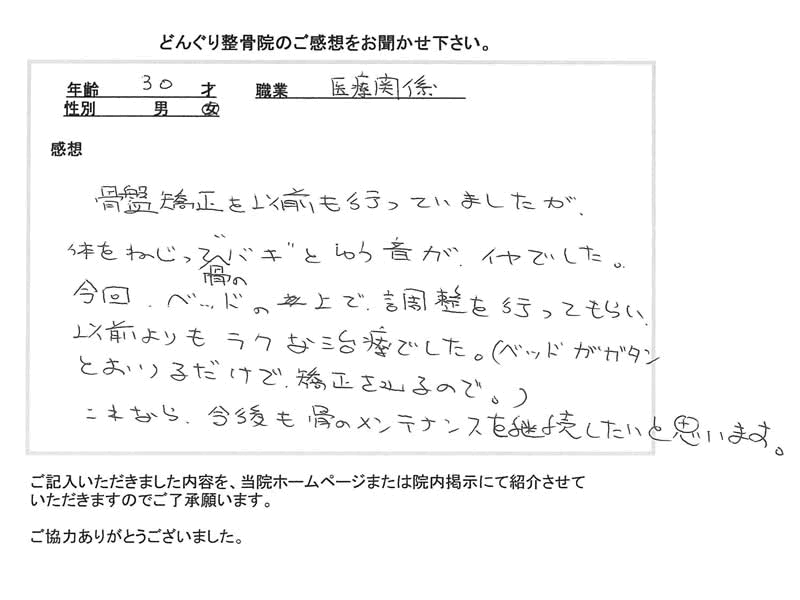 どんぐり整骨院のご感想をお聞かせ下さい。
年齢 30 才 職業 医療関係
性別 男 女
感想
骨盤矯正を以前も行っていましたが、
体をねじってバキ゛という音が、イヤでした。
骨の
今回、ベッドの上で、調整を行ってもらい、
以前よりもラクな治療でした。(ベッドがガタン
とおりるだけで、矯正を出るので。)
これなら、今後も骨のメンテナンスを継続したいと思います。
ご記入いただきました内容を、当院ホームページまたは院内掲示にて紹介させて
いただきますのでご了承願います。
ご協力ありがとうございました。